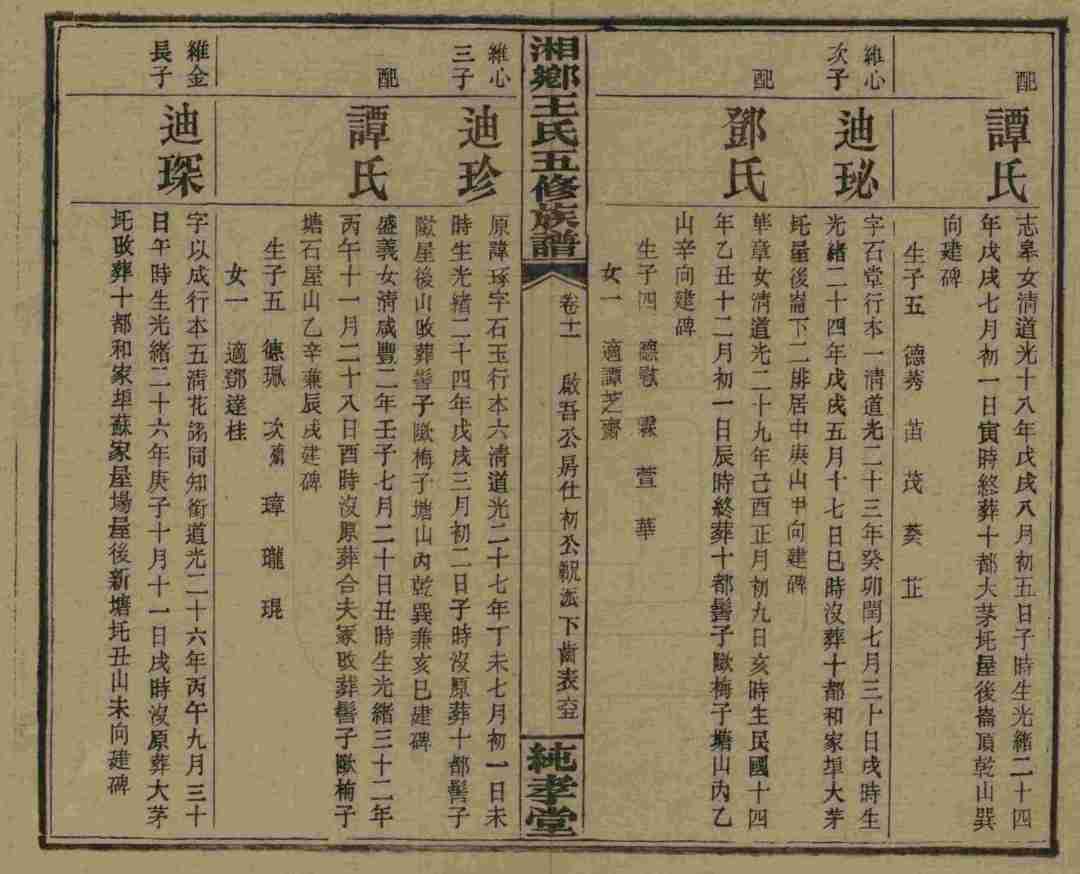 配
譚氏
志皋女清道光十八年戊戌八月初五日子時生光緒二十四
年戊戌七月初一日寅時終葬十都大茅坉屋後崙頂乾山巽
向建碑
生子五　德莠　苗　茂　葵　芷
維心
次子
迪珌
字石堂行本一清道光二十三年癸卯閏七月三十日戌時生
光緒二十四年戊戌五月十七日巳時沒葬十都和家埠大茅
坉屋後崙下二排居中庚山甲向建碑
配
鄧氏
華章女清道光二十九年己酉正月初九日亥時生民國十四
年乙丑十二月初一日辰時終葬十都髻子歐梅子塘山內乙
山辛向建碑
生子四　德　霖　萱　華
女一　適譚芝齋
湘鄉王氏五修族譜
卷十一　啟吾公房仕初公祝派下齒表
純孝堂
維心
三子
迪珍
原諱琢字石玉行本六清道光二十七年丁未七月初一日未
時生光緒二十四年戊戌三月初二日子時沒原葬十都髻子
歐屋後山改葬髻子歐梅子塘山內乾巽兼亥巳建碑
配
譚氏
盛義女清咸豐二年壬子七月二十日丑時生光緒三十二年
丙午十一月二十八日酉時沒原葬合夫冢改葬髻子歐梅子
塘石屋山乙辛兼辰戌建碑
生子五　德珮　次　璋　瓏　琨
女一　適鄧達桂
維金
長子
迪琛
字以成行本五清花翎同知銜道光二十六年丙午九月三十
日午時生光緒二十六年庚子十月十一日戌時沒原葬大茅
坉改葬十都和家埠蘇家屋場屋後新塘坉丑山未向建碑